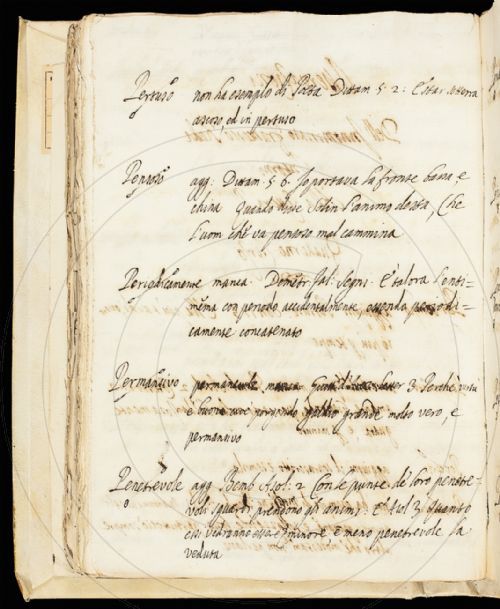 Pertuso non ha esempio di Poeta Dittam. 5. 2: E star sotterra
ascoso, ed in pertuso
Pensoso agg: Dittam. 5. 6. Io portava la fronte bassa, e
china Quando disse Solin l'animo desta, Che
l'uom che va pensoso mal cammina
Periodicamente manca. Demetr. Fal: Segni. E talora senti=
mēta con periodo accidentalmente, essendo periodi=
camente concatenato
Permansivo permanevole manca Perchè
e buona grande molto vero, e
permansivo
Penetrevole agg Bemb. Asol: 2 Con le punte de' loro penetre=
voli sguardi prendono gli animi. E Asol 3 quanto
essi vedranno essere minore e meno penetrevole la
veduta